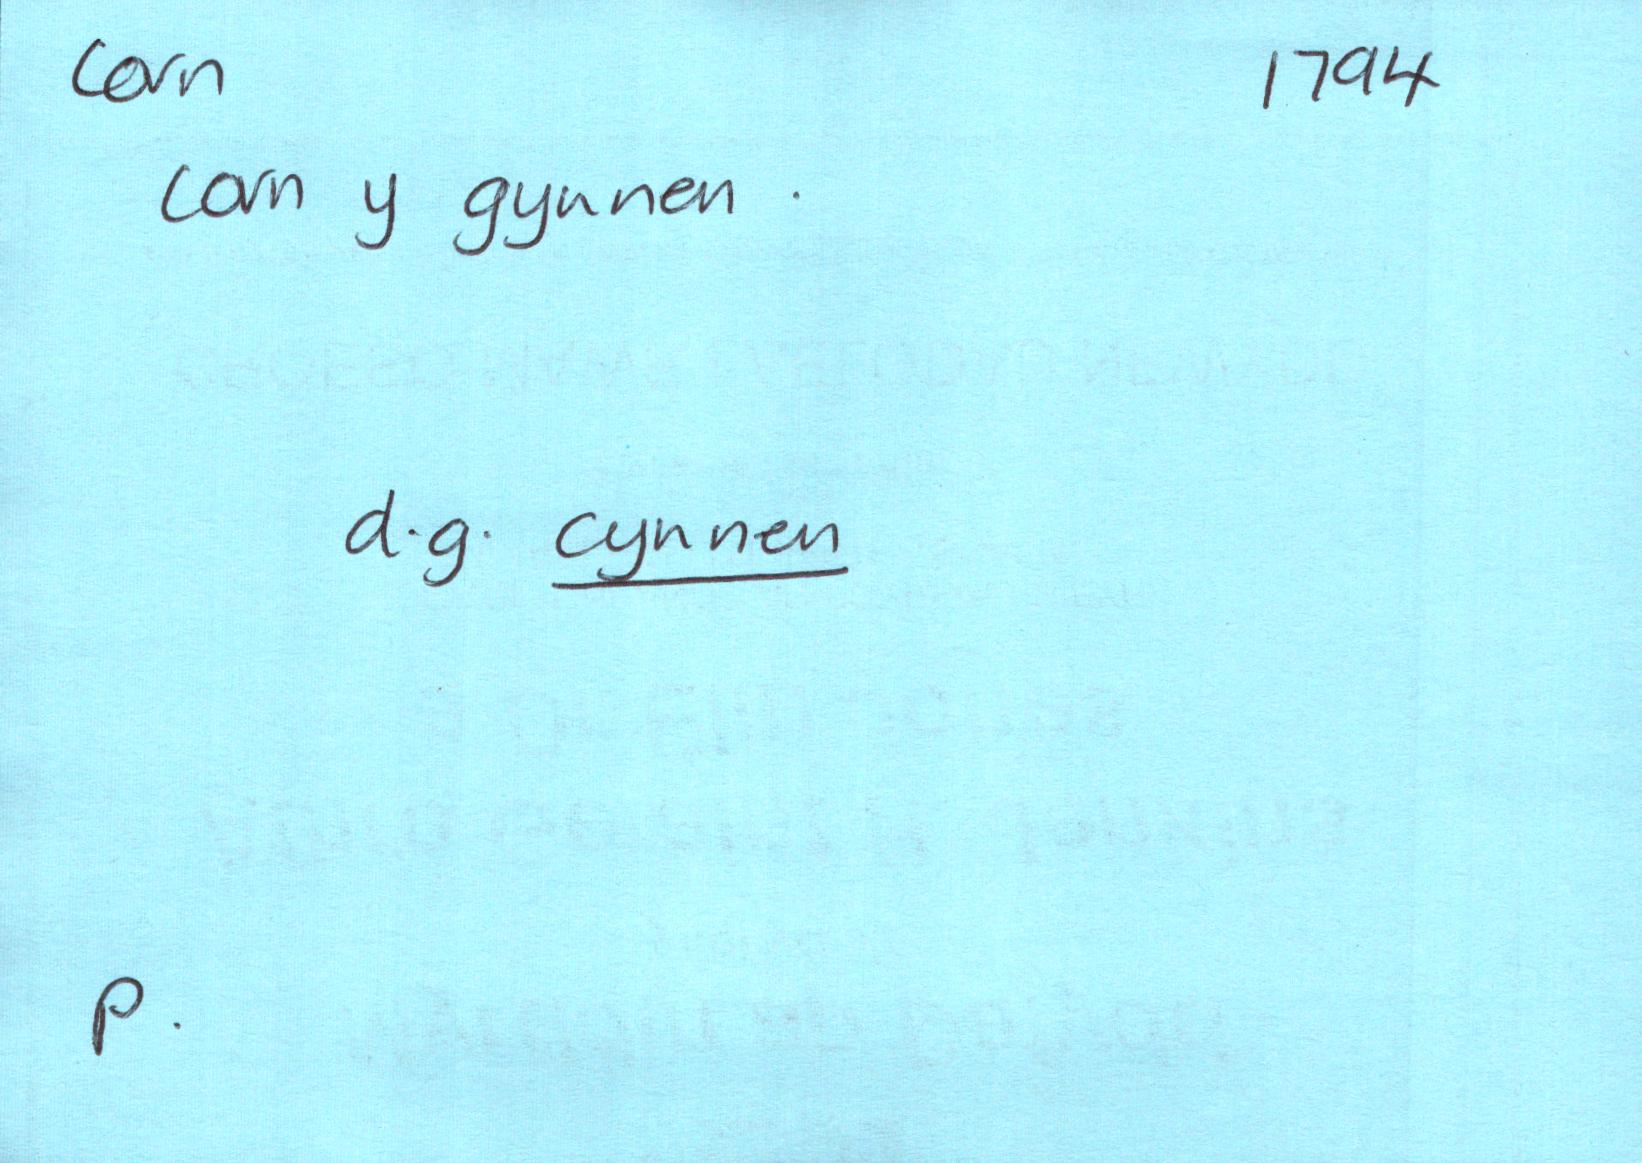 Corn 1794
Corn y gynnen.
d.g. cynnen
P.